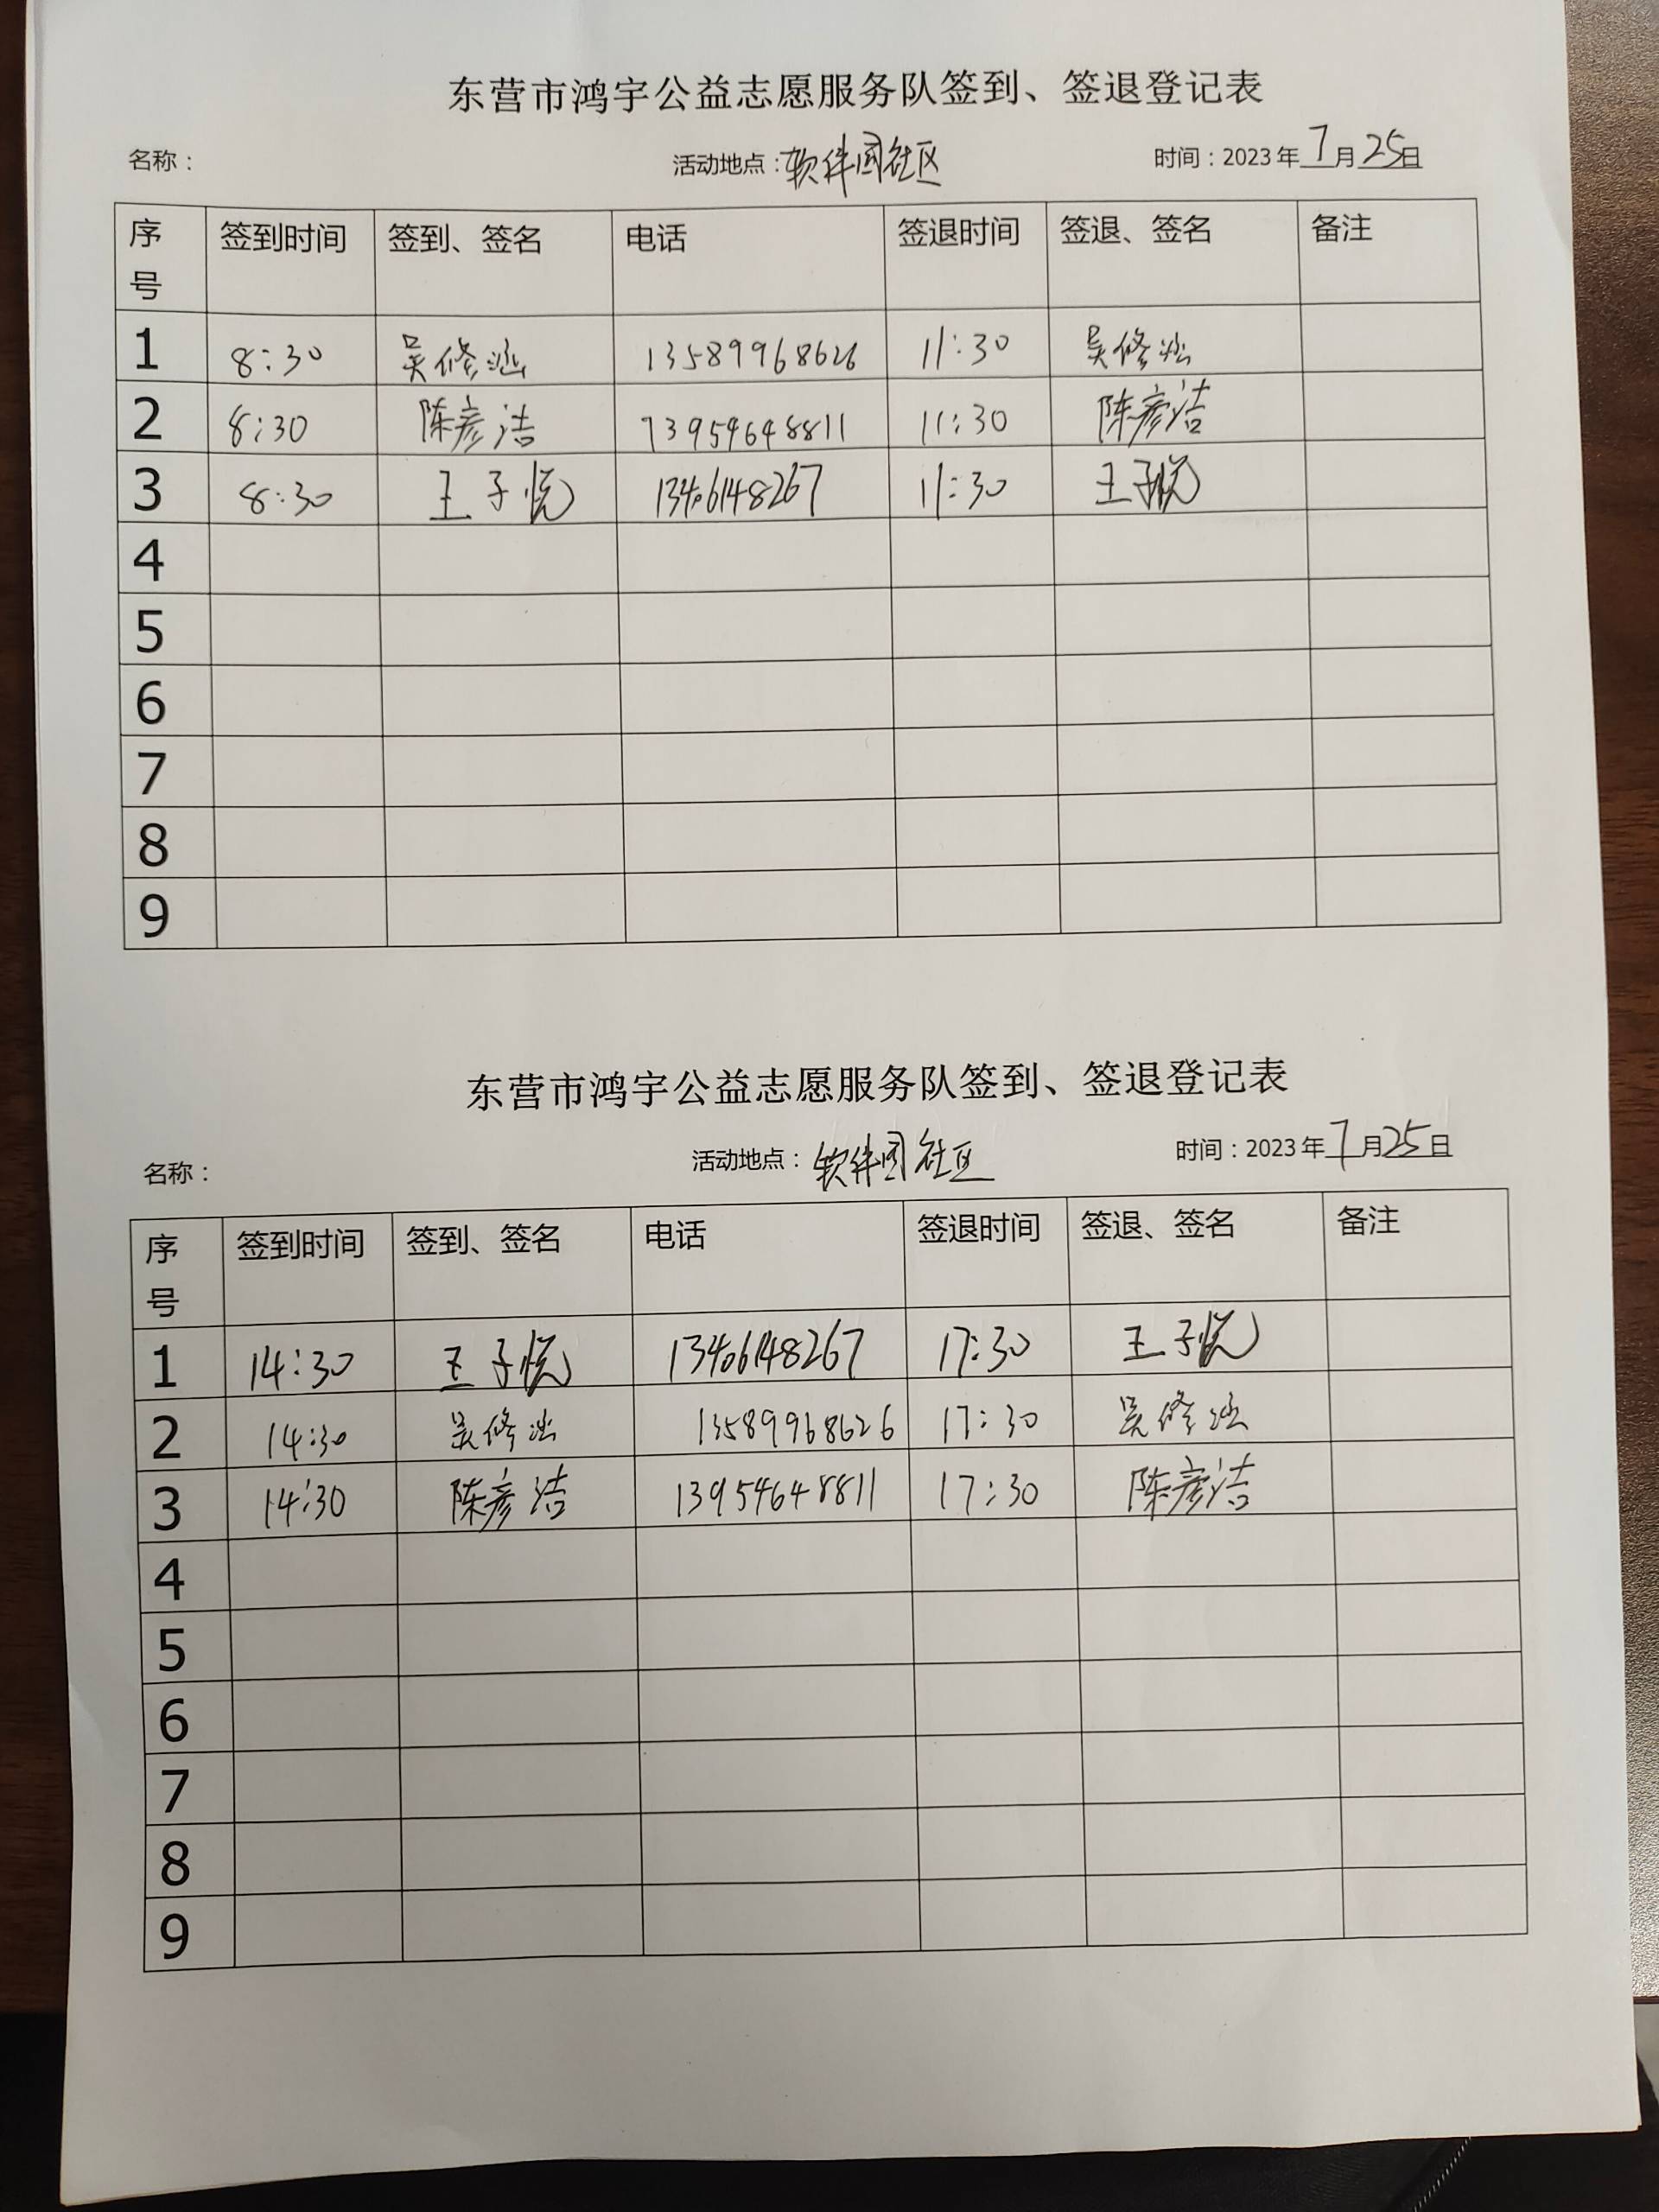 东营市鸿宇公益志愿服务队签到、签退登记表
名称： 活动地点：软件园社区 时间：2023年7月25日
序号 签到时间 签到、签名 电话 签退时间 签退、签名 备注
1 8:30 吴修涵 13589968626 11:30 吴修涵
2 8:30 陈彦洁 13954648811 11:30 陈彦洁
3 8:30 王子悦 13406148267 11:30 王子悦
4
5
6
7
8
9
东营市鸿宇公益志愿服务队签到、签退登记表
名称： 活动地点：软件园社区 时间：2023年7月25日
序号 签到时间 签到、签名 电话 签退时间 签退、签名 备注
1 14:30 王子悦 13406148267 17:30 王子悦
2 14:30 吴修涵 13589968626 17:30 吴修涵
3 14:30 陈彦洁 13954648811 17:30 陈彦洁
4
5
6
7
8
9